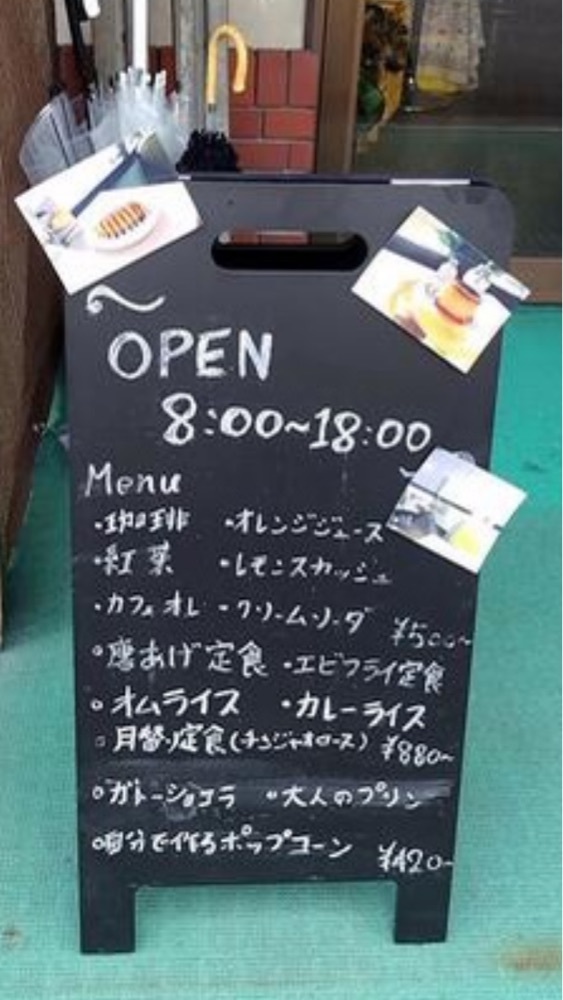 OPEN
8:00~18:00
Menu
・珈琲 ・オレンジジュース
・紅茶 ・レモンスカッシュ
・カフェオレ ・クリームソーダ ¥500~
・唐あげ定食 ・エビフライ定食
・オムライス ・カレーライス
・月替り定食(チンジャオロース) ¥880~
・ガトーショコラ ・大人のプリン
・自分で作るポップコーン ¥420~